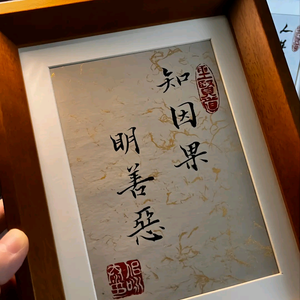 知因果
明善惡